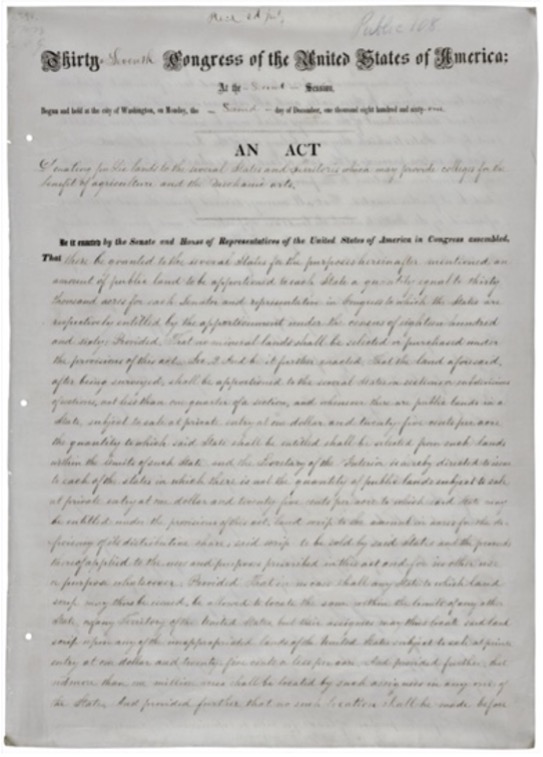 Public 108
Thirty Seventh Congress of the United States of America;
At the Second Session,
Begun and held at the city of Washington, on Monday, the Second day of December, one thousand eight hundred and sixty-one.
AN ACT
Donating public lands to the several States and Territories which may provide colleges for the
benefit of agriculture and the Mechanic arts.
Be it enacted by the Senate and House of Representatives of the United States of America in Congress assembled,
That there be granted to the several States for the purposes hereinafter mentioned an
amount of public land to be apportioned to each State a quantity equal to thirty
thousand acres for each Senator and representative in Congress to which the States are
respectively entitled by the apportionment under the census of eighteen hundred
and sixty: Provided, That no mineral lands shall be selected or purchased under
the provisions of this act. Sec. 2 And be it further enacted, That the land aforesaid,
after being surveyed, shall be apportioned to the several States in sections or subdivisions
of sections, not less than one quarter of a section, and whenever there are public lands in a
State, subject to sale at private entry at one dollar and twenty five cents per acre
the quantity to which said State shall be entitled shall be selected from such lands
within the limits of such State and the Secretary of the Interior is hereby directed to issue
to each of the states in which there is not the quantity of public lands subject to sale
at private entry at one dollar and twenty five cents per acre to which said State may
be entitled under the provisions of this act, land scrip to the amount in acres for the de-
ficiency of its distributive share, said scrip to be sold by said States and the proceeds
thereof applied to the uses and purposes prescribed in this act and for no other use
or purpose whatsoever: Provided That in no case shall any State to which land
scrip may thus be issued, be allowed to locate the same within the limits of any other
State, or of any Territory of the United States but their assignees may thus locate said land
scrip upon any of the unappropriated lands of the United States subject to sale at private
entry at one dollar and twenty five cents or less per acre. And provided further, that
not more than one million acres shall be located by such assignees in any one of
the States. And provided further that no such location shall be made before